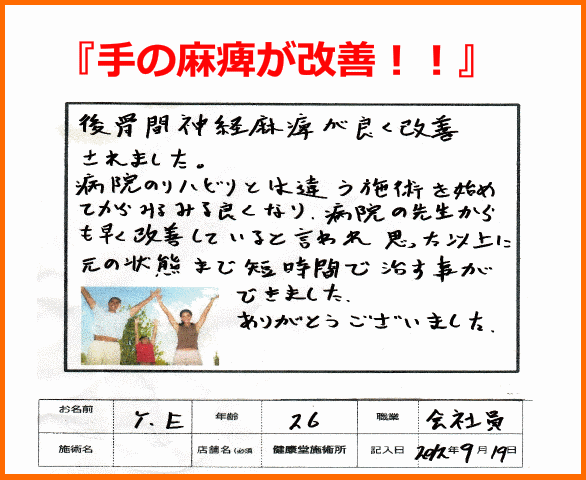 『手の麻痺が改善！！』
後骨間神経麻痺が良く改善
されました。
病院のリハビリとは違う施術を始め
てからみるみる良くなり、病院の先生から
も早く改善していると言われ 思った以上に
元の状態まで短時間で治す事が
できました、
ありがとうございました、
お名前 Y.E 年齢 26 職業 会社員
施術名 店舗名(必須 健康堂施術所 記入日 2012年9月19日